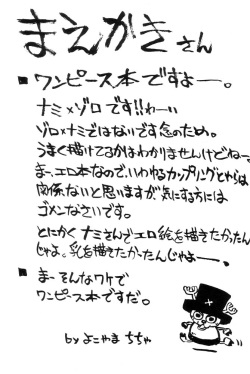 まえがきさん
■ワンピース本ですよー。
ナミ×ゾロです!!わーい
ゾロ×ナミではないです念のため。
うまく描けてるかはわかりませんけどねー。
まー、エロ本なので、いわゆるカップリングとやらは
関係ないと思いますが、気にする方には
ゴメンなさいです。
とにかくナミさんでエロ絵を描きたかったん
じゃよ。乳を描きたかったんじゃよーー。
■まーそんなワケで
ワンピース本ですだ。
by よこやま ちちゃ